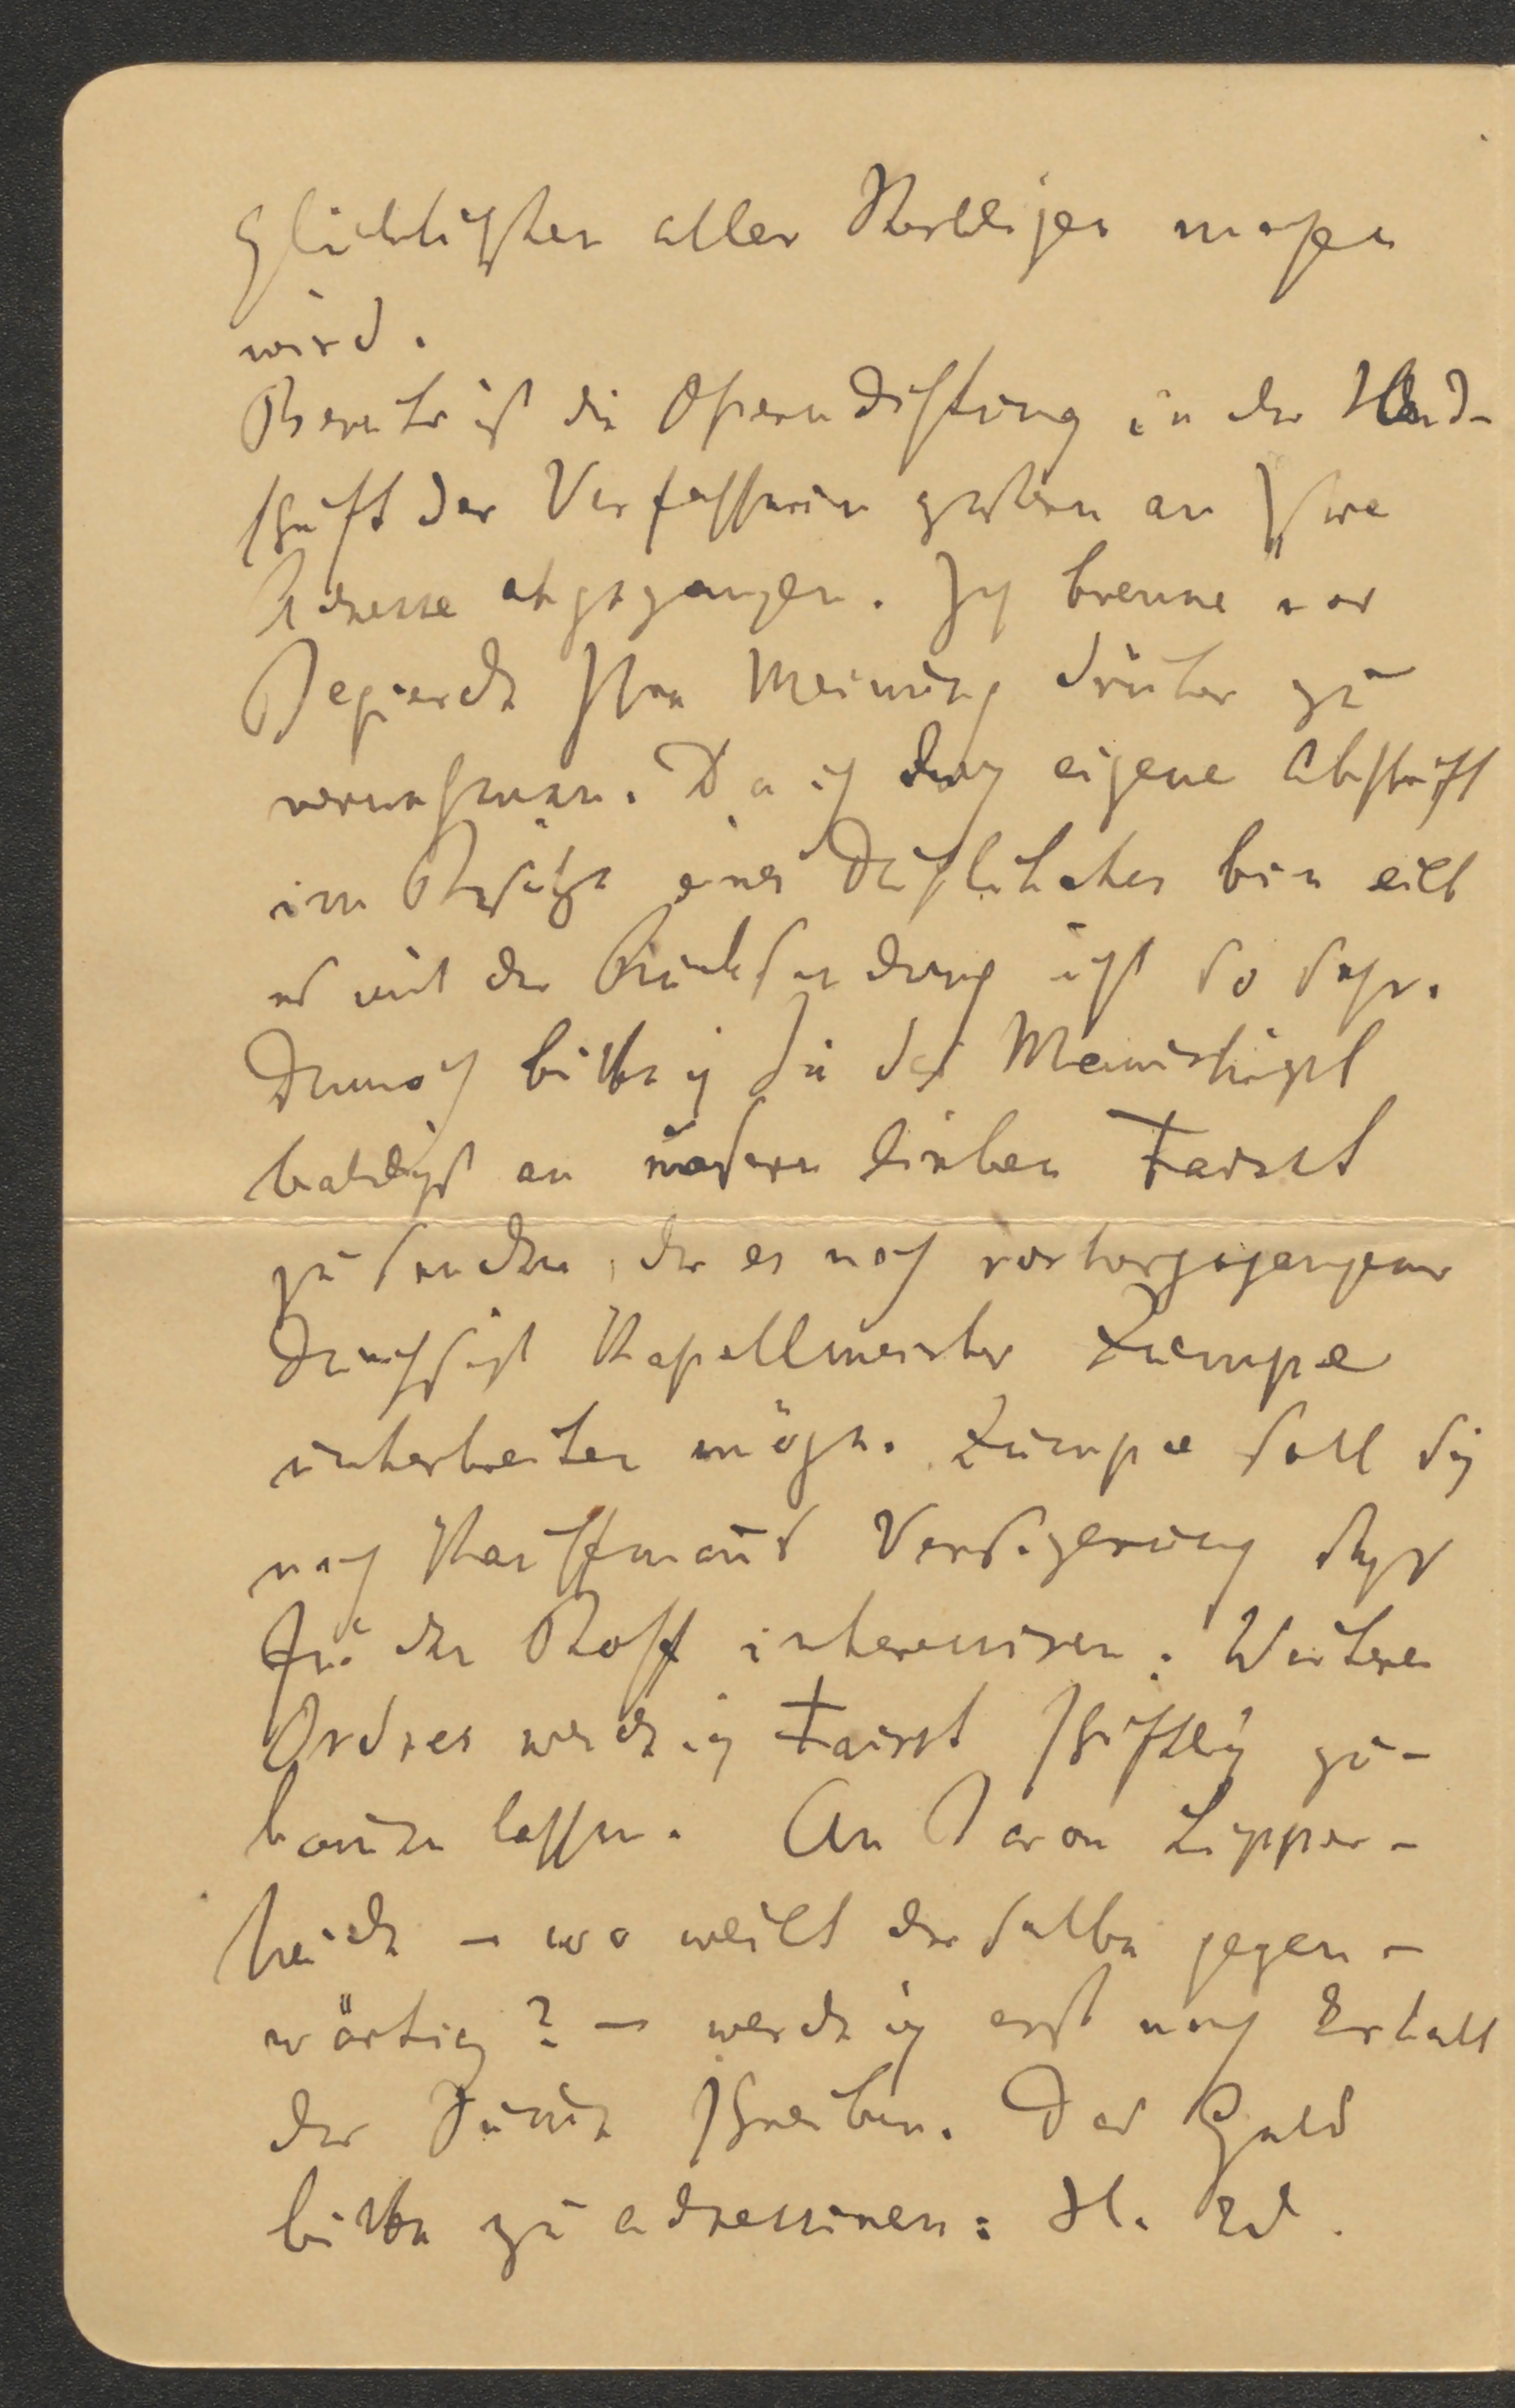 Glücklichsten aller Sterblichen machen
wird.
Bereits ist die Operndichtung in der Hand-
schrift der Verfasserin gestern an Ihre
Adresse abgegangen. Ich brenne vor
Begierde Ihre Meinung drüber zu
vernehmen. Da ich durch eigene Abschrift
im Besitze eines Duplikates bin eilt
es mit der Rücksendung nicht so sehr.
Dennoch bitte ich Sie das Manuskript
baldigst an unseren lieben Faisst
zu senden, der es nach vorhergegangener
Durchsicht Kapellmeister Zumpe
unterbreiten möge. Zumpe soll sich
nach Kauffmanns Versicherung sehr
für den Stoff interessiren. Weitere
Ordres werde ich Faisst schriftlich zu-
kommen lassen. An Baron Lipper-
heide – wo weilt derselbe gegen-
wärtig? – werde ich erst nach Erhalt
der Summe schreiben. Das Geld
bitte zu adressiren: H. Ed.